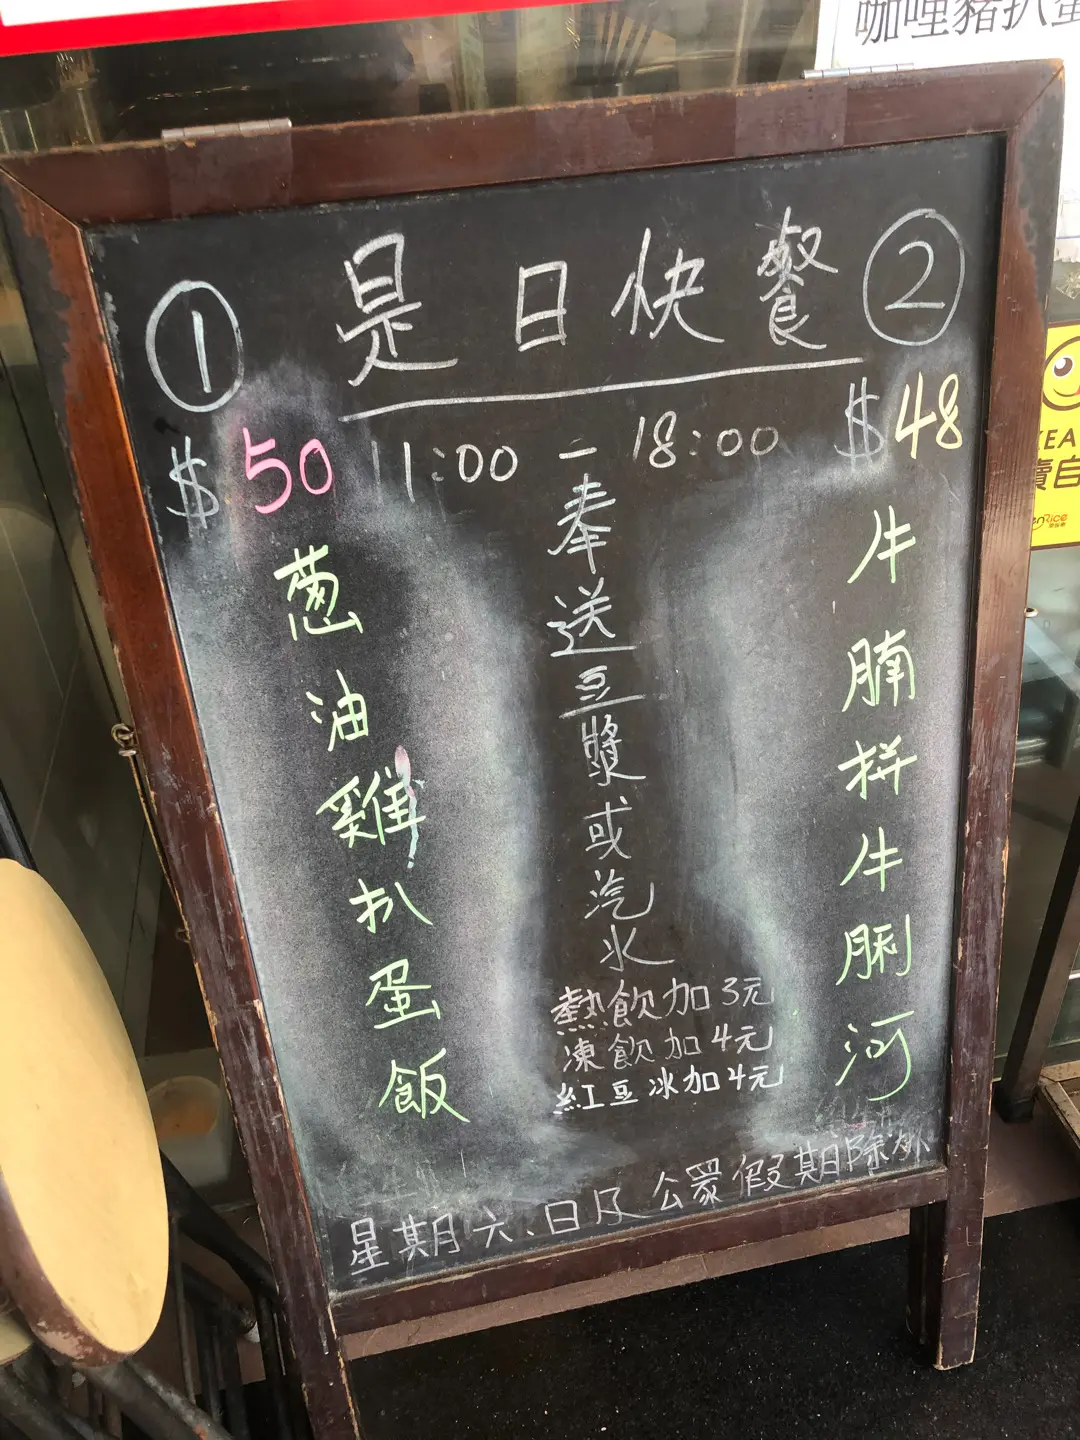 咖哩豬扒
① 是日快餐 ②
$50 11:00 - 18:00 $48
葱油雞扒蛋飯
奉送豆漿或汽水
熱飲加3元
凍飲加4元
紅豆冰加4元
牛腩拼牛脷河
星期六、日及公眾假期除外